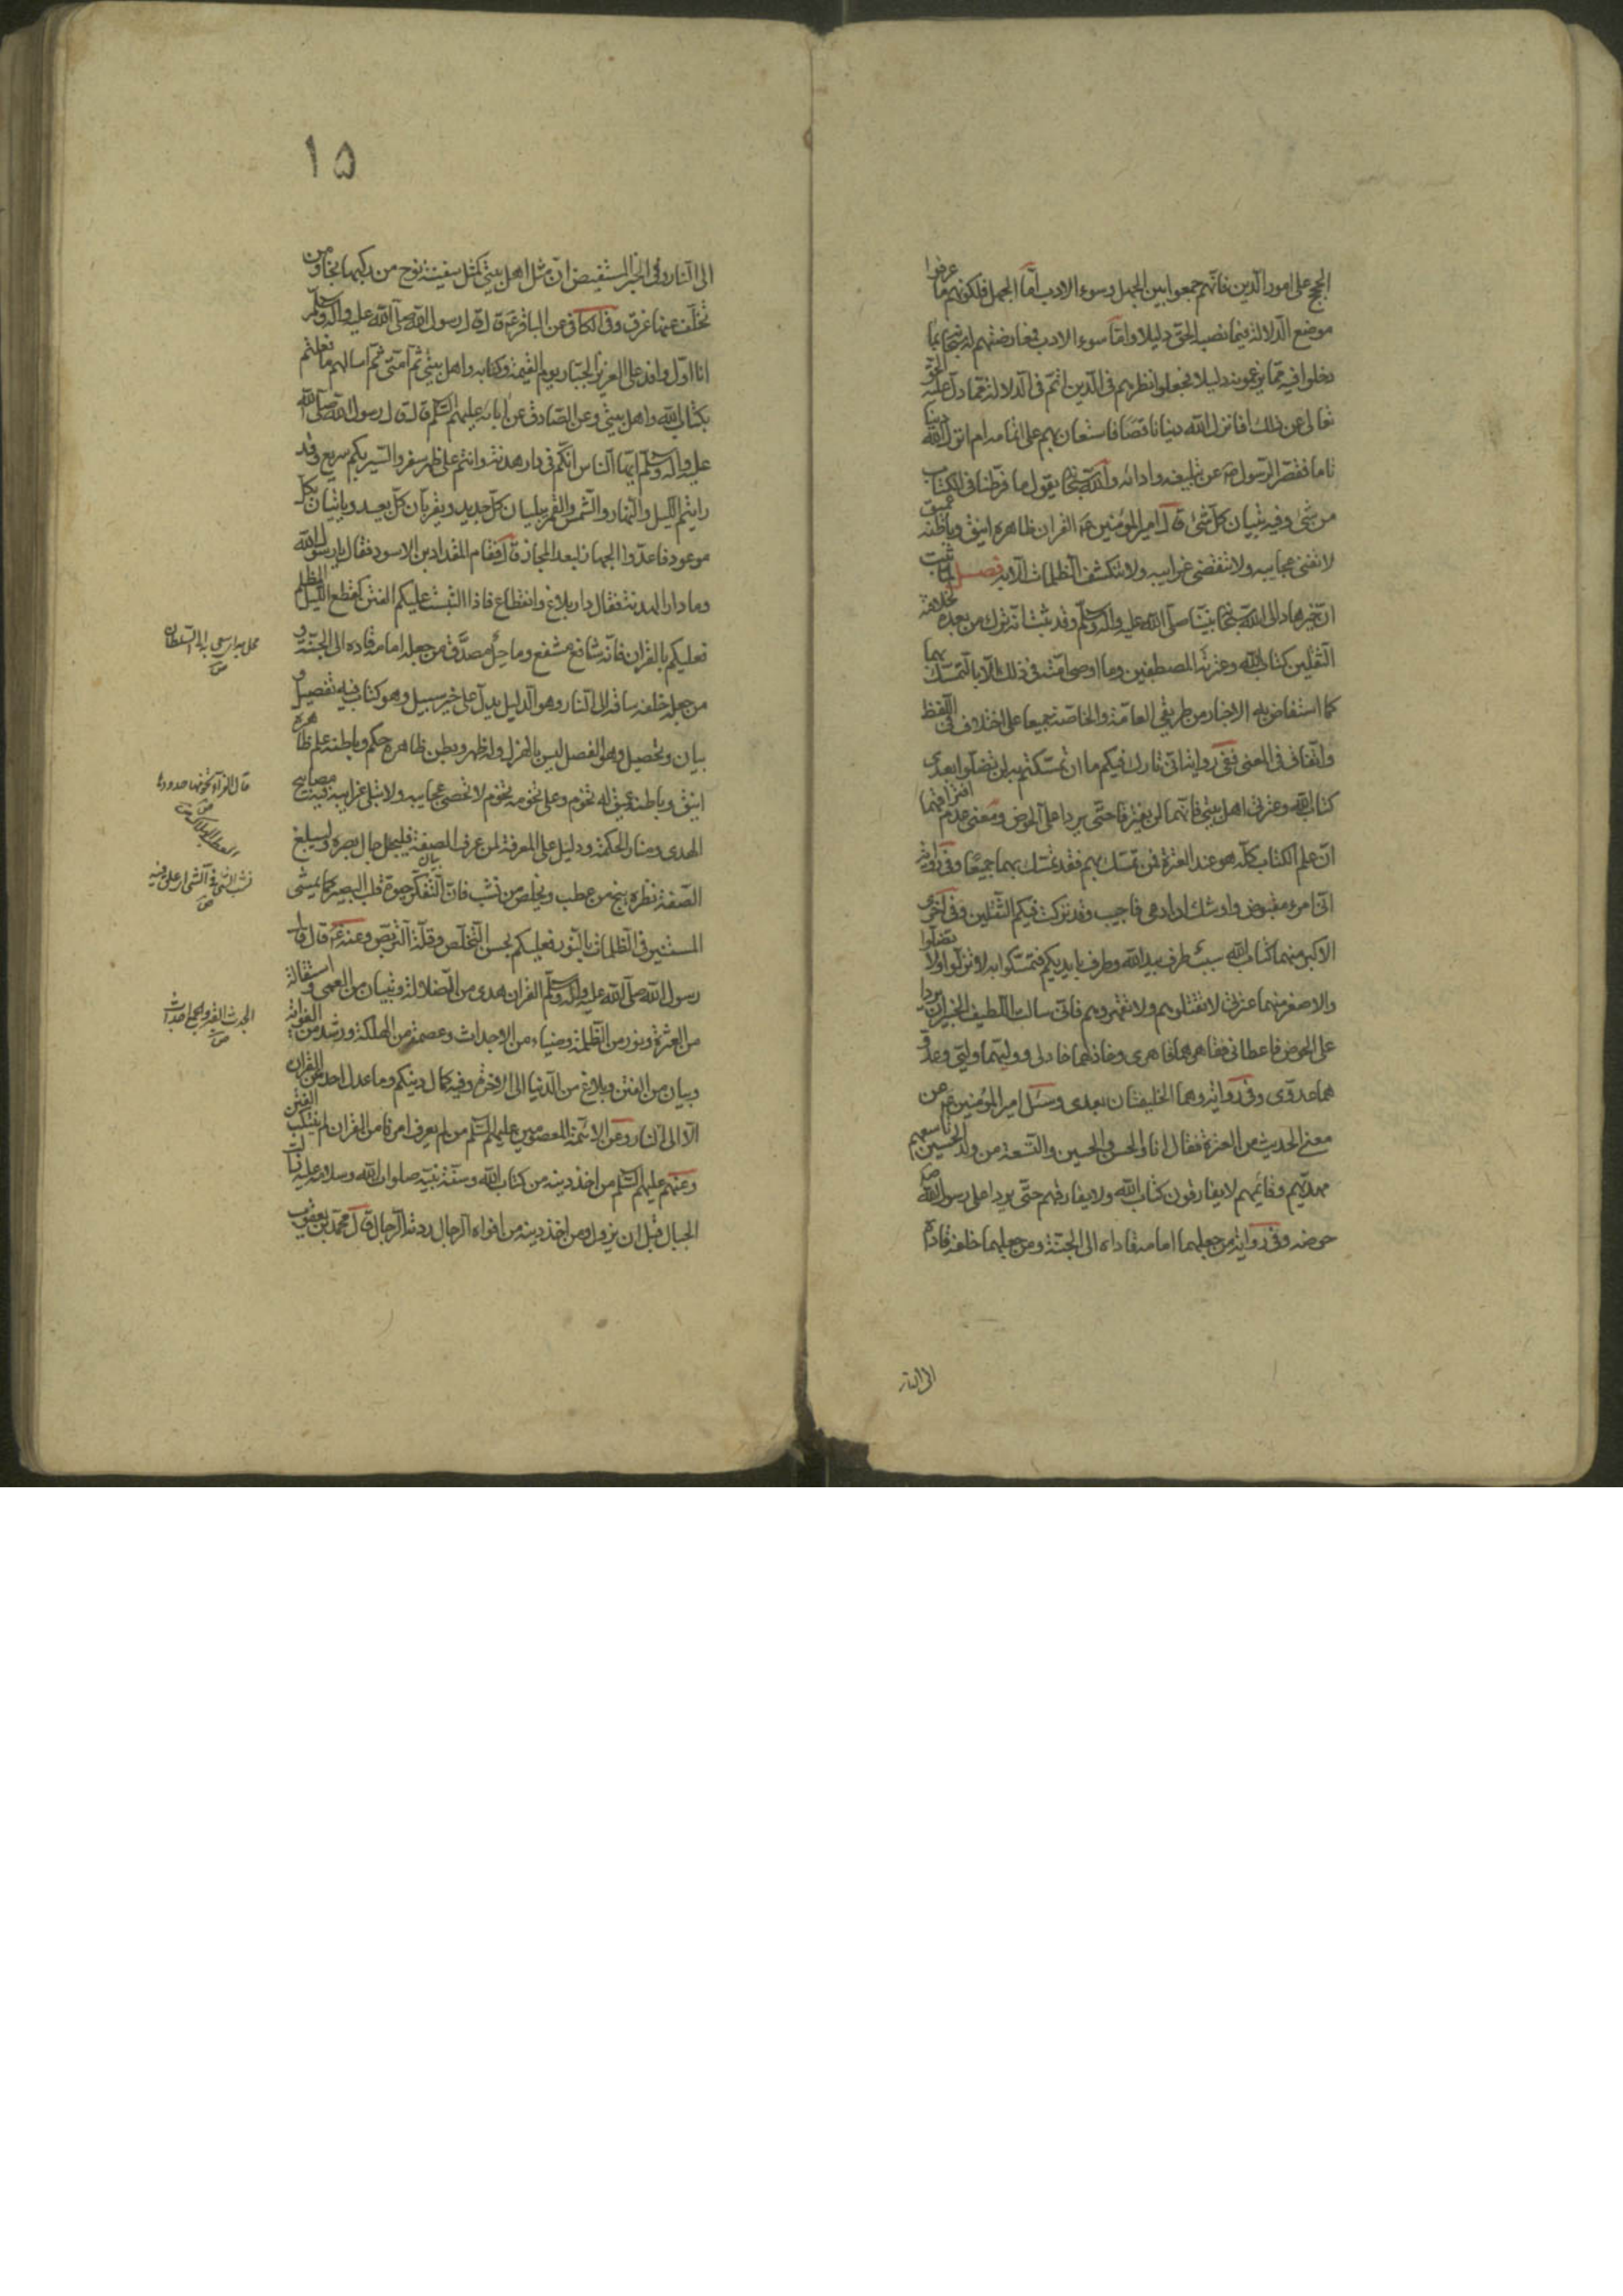 الحجج على امور الدين فانهم جمعوا بين الجهل وسوء الادب امّا الجهل فلكونهم ما عرفوا
موضع الدلالة فيما نصب الحق دليلا وامّا سوء الادب فمعارضتهم له سبحانه بما
دخلوا فيه مما يزعمونه دليلا فجعلوا نظرهم في الدين اتمّ في الدلالة مما دل عليه الحق
تعالى عن ذلك افانزل الله دينا ناقصا فاستعان بهم على اتمامه ام انزل الله دينا
تاما فقصّر الرسول ص عن تبليغه وادائه والله سبحانه يقول ما فرطنا في الكتاب
من شئ وفيه تبيان كل شئ قال امير المؤمنين ع القران ظاهره انيق وباطنه عميق
لا تفنى عجايبه ولا تنقضى غرايبه ولا تنكشف الظلمات الا به فصل
انّ خير هاد الى الله سبحانه نبينا صلى الله عليه واله وسلم وقد ثبت انه ترك من بعده
الثقلين كتاب الله وعترته المصطفين وما اوصى امته في ذلك الا بالتمسك بهما
كما استفاض به الاخبار من طريقي العامة والخاصة جميعا على اختلاف في اللفظ
واتفاق في المعنى ففى رواية انّى تارك فيكم ما ان تمسكتم به لن تضلوا بعدى
كتاب الله وعترتى اهل بيتى فانهما لن يفترقا حتى يردا على الحوض ومعنى عدم افتراقهما
ان علم الكتاب كله هو عند العترة فمن تمسك بهم فقد تمسك بهما جميعا وفى رواية
انى امرء مقبوض واوشك ان ادعى فاجيب وقد تركت فيكم الثقلين وفى اخرى
الاكبر منهما كتاب الله سبب طرف بيد الله وطرف بايديكم فتمسكوا به لا تزلوا ولا تضلوا
والاصغر منهما عترتى لا تقتلوهم ولا تقهروهم فانى سالت اللطيف الخبير ان يردا
على الحوض فاعطانى فقاهرهما قاهرى وخاذلهما خاذلى ووليهما وليى وعدو
هما عدوى وفى رواية وهما الخليفتان بعدى وسئل امير المؤمنين ع عن
معنى الحديث من العترة فقال انا والحسن والحسين والتسعة من ولد الحسين تاسعهم
مهديهم وقائمهم لا يفارقون كتاب الله ولا يفارقهم حتى يردا على رسول الله ص
حوضه وفى رواية من جعلهما امامه قاداه الى الجنة ومن جعلهما خلفه قاداه
الى النار
١٥
الى النار وفى الخبر المستفيض انّ مثل اهل بيتى كمثل سفينة نوح من ركبها نجا ومن
تخلف عنها غرق وفى الكافى عن الباقر ع قال قال رسول الله صلى الله عليه واله وسلم
انا اول وافد على العزيز الجبار يوم القيمة وكتابه واهل بيتى ثم امتى ثم اسالهم ما فعلتم
بكتاب الله واهل بيتى وعن الصادق عن ابائه عليهم السلم قال قال رسول الله صلى الله
عليه واله وسلم ايها الناس انكم فى دار هدنة وانتم على ظهر سفر والسير بكم سريع وقد
رايتم الليل والنهار والشمس والقمر يبليان كل جديد ويقربان كل بعيد وياتيان بكل
موعود فاعدّوا الجهاز لبعد المجاز قال فقام المقداد بن الاسود فقال يا رسول الله
وما دار الهدنة فقال دار بلاغ وانقطاع فاذا التبست عليكم الفتن كقطع الليل المظلم
فعليكم بالقران فانه شافع مشفع وماحل مصدّق من جعله امامه قاده الى الجنة و
من جعله خلفه ساقه الى النار وهو الدليل يدل على خير سبيل وهو كتاب فيه تفصيل و
بيان وتحصيل وهو الفصل ليس بالهزل وله ظهر وبطن ظاهره حكم وباطنه علم ظاهره
انيق وباطنه عميق له تخوم وعلى تخومه تخوم لا تحصى عجايبه ولا تبلى غرايبه فيه مصابيح
الهدى ومنار الحكمة ودليل على المعرفة لمن عرف الصفة فليجل جال بصره وليبلغ
الصفة نظره ينج من عطب ويخلص من نشب فان التفكر حيوة قلب البصير كما يمشى
المستنير فى الظلمات بالنور فعليكم بحسن التخلص وقلة التربص وعنه ع قال قال
رسول الله صلى الله عليه واله وسلم القران هدى من الضلالة وتبيان من العمى واستقالة
من العثرة ونور من الظلمة وضياء من الاجداث وعصمة من الهلكة ورشد من الغواية
وبيان من الفتن وبلاغ من الدنيا الى الاخرة وفيه كمال دينكم وما عدل احد عن القران
الا الى النار وعن الائمة المعصومين عليهم السلم من لم يعرف امرنا من القران لم يتنكب الفتن
وعنهم عليهم السلم من اخذ دينه من كتاب الله وسنة نبيه صلوات الله وسلامه عليه زالت
الجبال قبل ان يزول ومن اخذ دينه من افواه الرجال ردته الرجال قال محمد بن يعقوب
محل به اذا سعى به الى السلطان ص
نشب الشئ فى الشئ اذا علق فيه ص
الجدث القبر والجمع اجداث ص